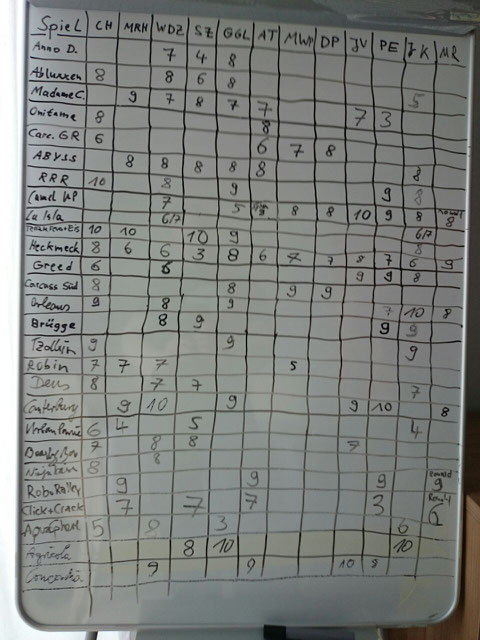 Spiel CH MRH WDZ SZ GGL AT MWP DP JV PE JK MR
Anno D. 7 4 8
Abluxxen 8 8 6 8
Madame C. 9 7 8 7 7 5
Onitama 8 8 7 3
Carc. GR 6 6 7 8
ABYSS 8 8 8 8 8 8
RRR 10 8 9 9 8
Camel UP 7 5 8 8 10 9 8 8
La Isla 6/7 6/7
10 10 10 9 8
Heckmeck 8 6 6 3 8 6 7 7 8 7 6 9
Greed 6 6 9 9 8
Carcass Süd 8 8 9 9
Orleans 9 8 9 7 10 8
Brügge 8 9 9 9
Tzolkin 9 9 9
Robin 7 7 7 5
Deus 8 7 7 7
Canterbury 9 10 9 9 10 8
6 4 5 4
7 8 8 7
8 8
RoboRalley 9 9 9 9
Click+Crack 7 7 7 3 6
5 8 3 6
Agricola 8 10 10
Concordia 9 9 10 8